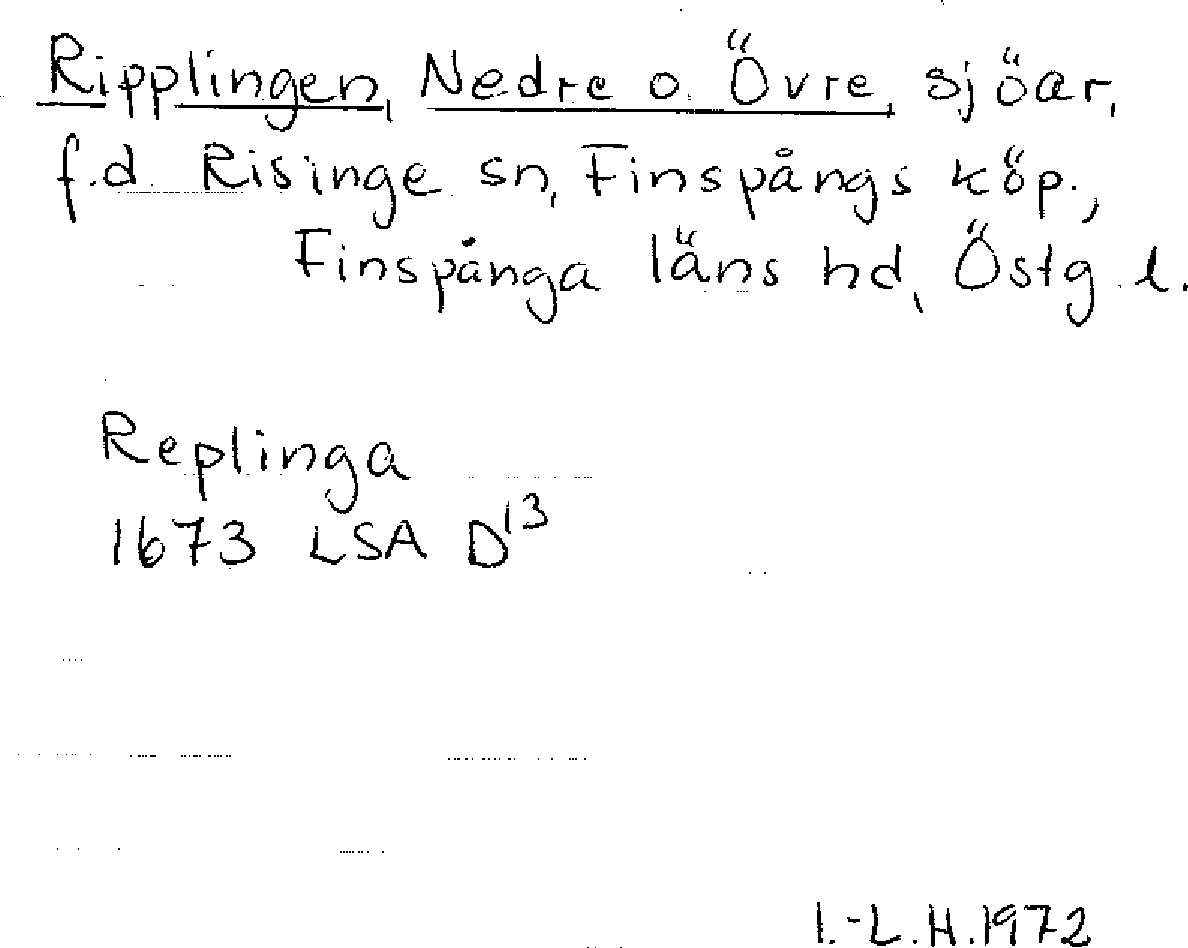 Ripplingen, Nedre o. Övre, sjöar,
f.d. Risinge sn, Finspångs köp.,
Finspånga läns hd, Östg. l.
Replinga
1673 LSA D¹³
I.-L.H.1972